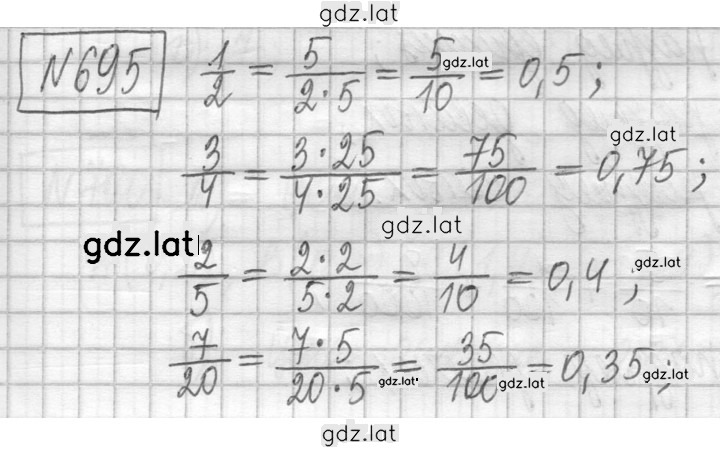 gdz.lat
№695 1/2 = 5/(2·5) = 5/10 = 0,5;
gdz.lat
gdz.lat
3/4 = (3·25)/(4·25) = 75/100 = 0,75;
gdz.lat
gdz.lat
2/5 = (2·2)/(5·2) = 4/10 = 0,4;
gdz.lat
7/20 = (7·5)/(20·5) = 35/100 = 0,35;
gdz.lat
gdz.lat
gdz.lat
gdz.lat